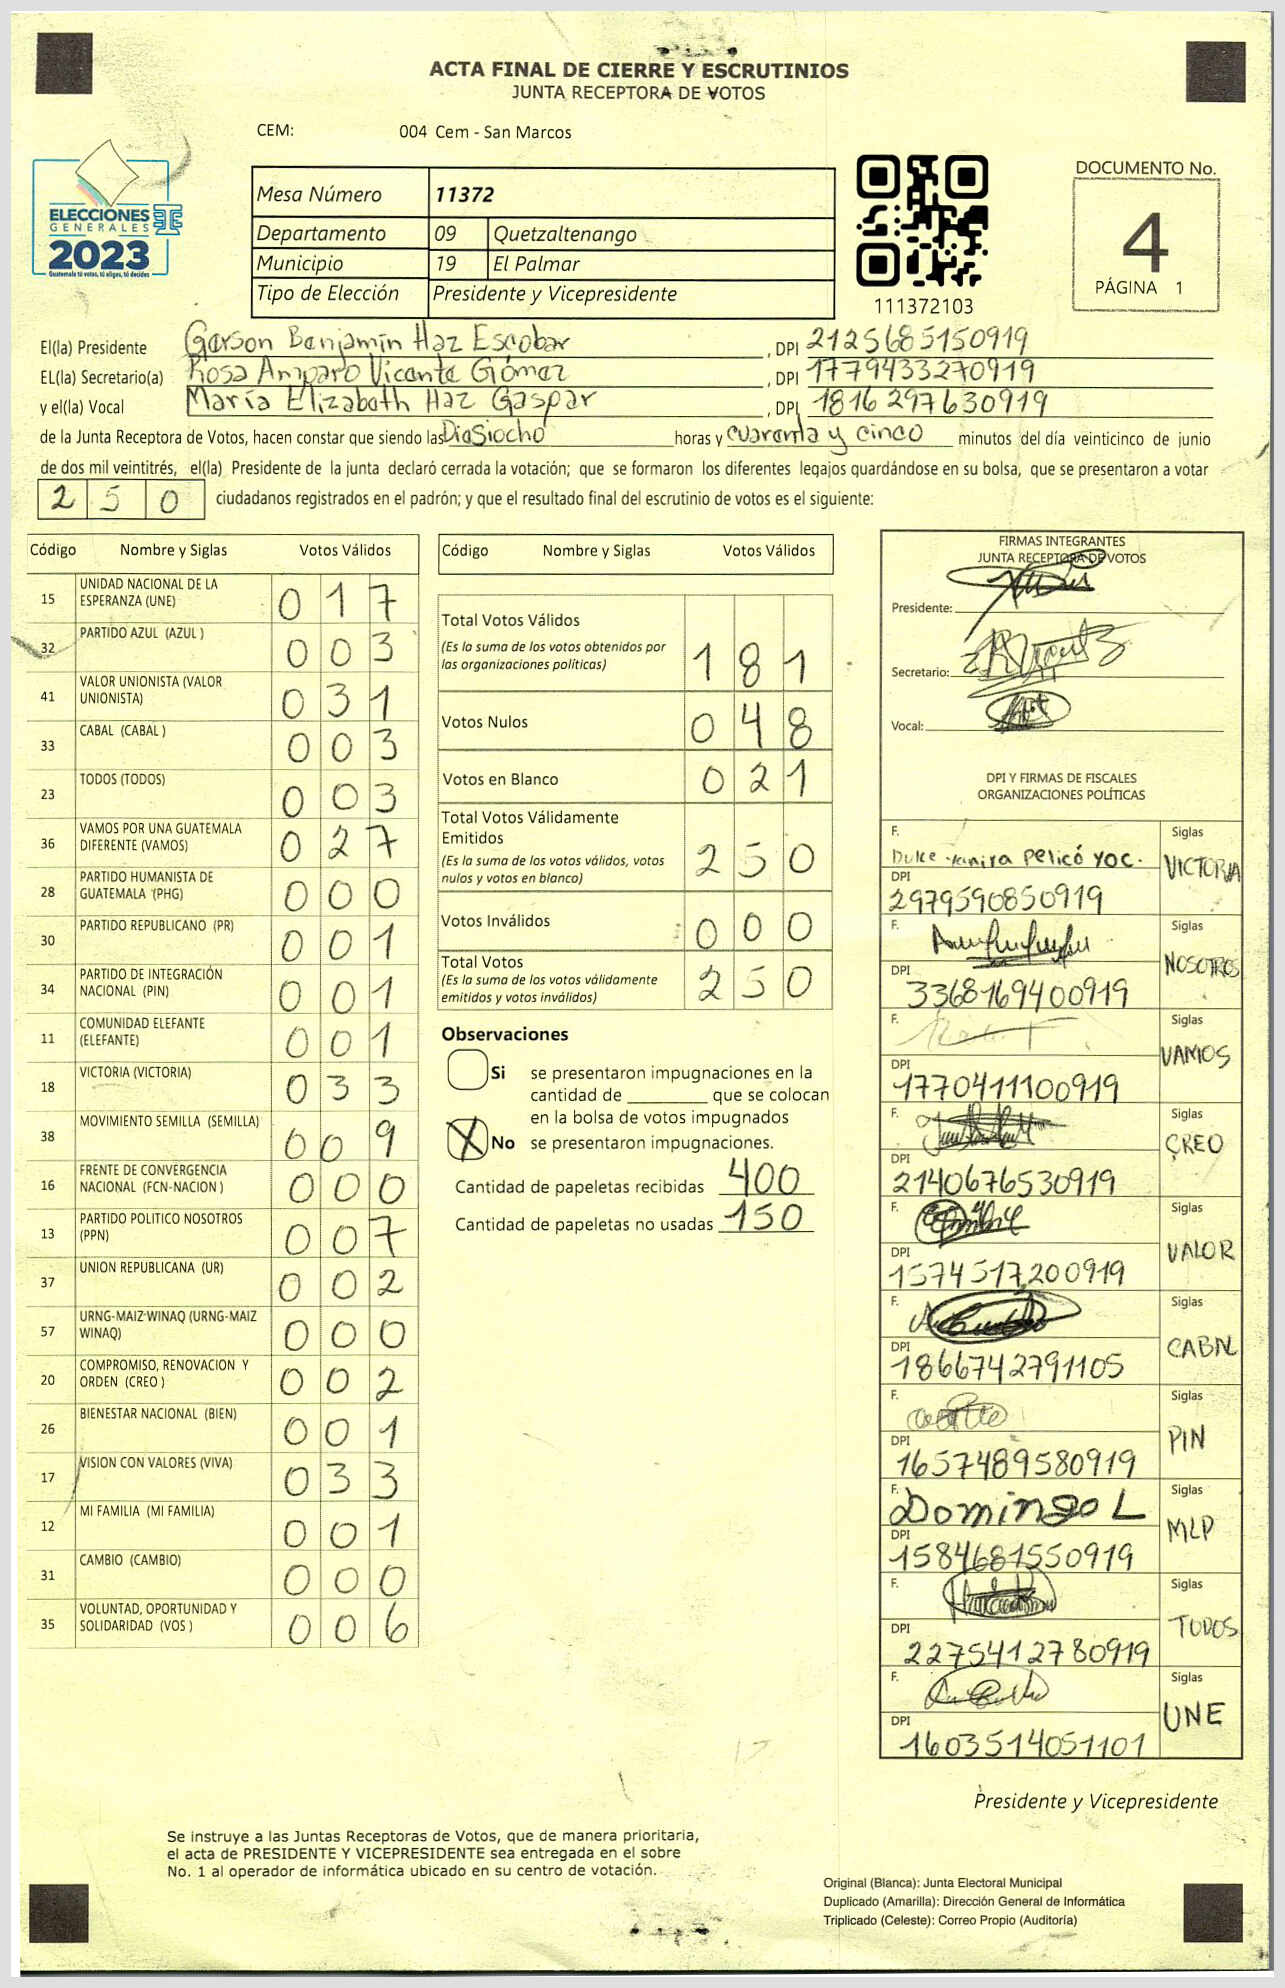 ACTA FINAL DE CIERRE Y ESCRUTINIOS
JUNTA RECEPTORA DE VOTOS
CEM: 004 Cem - San Marcos
ELECCIONES
GENERALES
2023
Guatemala tú votas, tú eliges, tú decides
Mesa Número 11372
Departamento 09 Quetzaltenango
Municipio 19 El Palmar
Tipo de Elección Presidente y Vicepresidente
111372103
DOCUMENTO No.
4
PÁGINA 1
El(la) Presidente Gerson Benjamín Haz Escobar, DPI 2125685150919
EL(la) Secretario(a) Rosa Amparo Vicente Gómez, DPI 1779433270919
y el(la) Vocal María Elizabeth Haz Gaspar, DPI 1816297630919
de la Junta Receptora de Votos, hacen constar que siendo las Diesiocho horas y cuarenta y cinco minutos del día veinticinco de junio
de dos mil veintitrés, el(la) Presidente de la junta declaró cerrada la votación; que se formaron los diferentes legajos quardándose en su bolsa, que se presentaron a votar
250 ciudadanos registrados en el padrón; y que el resultado final del escrutinio de votos es el siguiente:
Código Nombre y Siglas Votos Válidos
15 UNIDAD NACIONAL DE LA ESPERANZA (UNE) 017
32 PARTIDO AZUL (AZUL ) 003
41 VALOR UNIONISTA (VALOR UNIONISTA) 031
33 CABAL (CABAL ) 003
23 TODOS (TODOS) 003
36 VAMOS POR UNA GUATEMALA DIFERENTE (VAMOS) 027
28 PARTIDO HUMANISTA DE GUATEMALA (PHG) 000
30 PARTIDO REPUBLICANO (PR) 001
34 PARTIDO DE INTEGRACIÓN NACIONAL (PIN) 001
11 COMUNIDAD ELEFANTE (ELEFANTE) 001
18 VICTORIA (VICTORIA) 033
38 MOVIMIENTO SEMILLA (SEMILLA) 009
16 FRENTE DE CONVERGENCIA NACIONAL (FCN-NACION ) 000
13 PARTIDO POLITICO NOSOTROS (PPN) 007
37 UNION REPUBLICANA (UR) 002
57 URNG-MAIZ-WINAQ (URNG-MAIZ WINAQ) 000
20 COMPROMISO, RENOVACION Y ORDEN (CREO ) 002
26 BIENESTAR NACIONAL (BIEN) 001
17 VISION CON VALORES (VIVA) 033
12 MI FAMILIA (MI FAMILIA) 001
31 CAMBIO (CAMBIO) 000
35 VOLUNTAD, OPORTUNIDAD Y SOLIDARIDAD (VOS ) 006
Código Nombre y Siglas Votos Válidos
Total Votos Válidos 181
(Es la suma de los votos obtenidos por
las organizaciones políticas)
Votos Nulos 048
Votos en Blanco 021
Total Votos Válidamente
Emitidos 250
(Es la suma de los votos válidos, votos
nulos y votos en blanco)
Votos Inválidos 000
Total Votos 250
(Es la suma de los votos válidamente
emitidos y votos inválidos)
Observaciones
Si se presentaron impugnaciones en la
cantidad de ________ que se colocan
en la bolsa de votos impugnados
X No se presentaron impugnaciones.
Cantidad de papeletas recibidas 400
Cantidad de papeletas no usadas 150
FIRMAS INTEGRANTES
JUNTA RECEPTORA DE VOTOS
Presidente:
Secretario:
Vocal:
DPI Y FIRMAS DE FISCALES
ORGANIZACIONES POLÍTICAS
F. Dulce Yanira Pelicó Yoc. Siglas VICTORIA
DPI 2979590850919
F. Siglas NOSOTROS
DPI 3368169400919
F. Siglas VAMOS
DPI 1770411100919
F. Siglas CREO
DPI 2140676530919
F. Siglas VALOR
DPI 1574517200919
F. Siglas CABAL
DPI 1866742791105
F. Siglas PIN
DPI 1657489580919
F. Domingo L Siglas MLP
DPI 1584681550919
F. Siglas TODOS
DPI 2275412780919
F. Siglas UNE
DPI 1603514051101
Presidente y Vicepresidente
Se instruye a las Juntas Receptoras de Votos, que de manera prioritaria,
el acta de PRESIDENTE Y VICEPRESIDENTE sea entregada en el sobre
No. 1 al operador de informática ubicado en su centro de votación.
Original (Blanca): Junta Electoral Municipal
Duplicado (Amarilla): Dirección General de Informática
Triplicado (Celeste): Correo Propio (Auditoría)